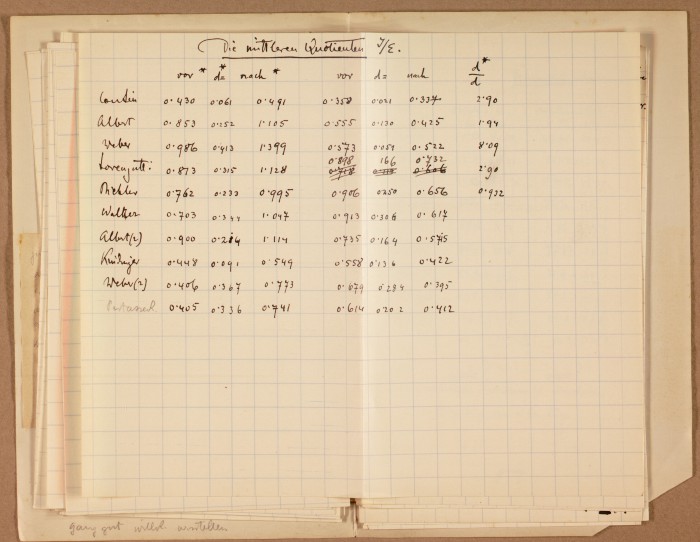 Die mittleren Quotienten I/E.
vor * d*= nach * vor d= nach d*/d
0.430 0.061 0.491 0.358 0.021 0.337 2.90
Albert 0.853 0.252 1.105 0.555 0.130 0.425 1.94
Weber 0.986 0.413 1.399 0.573 0.051 0.522 8.09
0.898 166 0.732
0.873 0.315 1.128 0.718 0.606 2.90
0.762 0.233 0.995 0.906 0.250 0.656 0.932
Walther 0.703 0.344 1.047 0.913 0.306 0.617
Albert(2) 0.900 0.214 1.114 0.735 0.164 0.575
0.448 0.091 0.549 0.558 0.136 0.422
Weber(2) 0.406 0.367 0.773 0.679 0.284 0.395
0.405 0.336 0.741 0.614 0.202 0.412
ganz gut